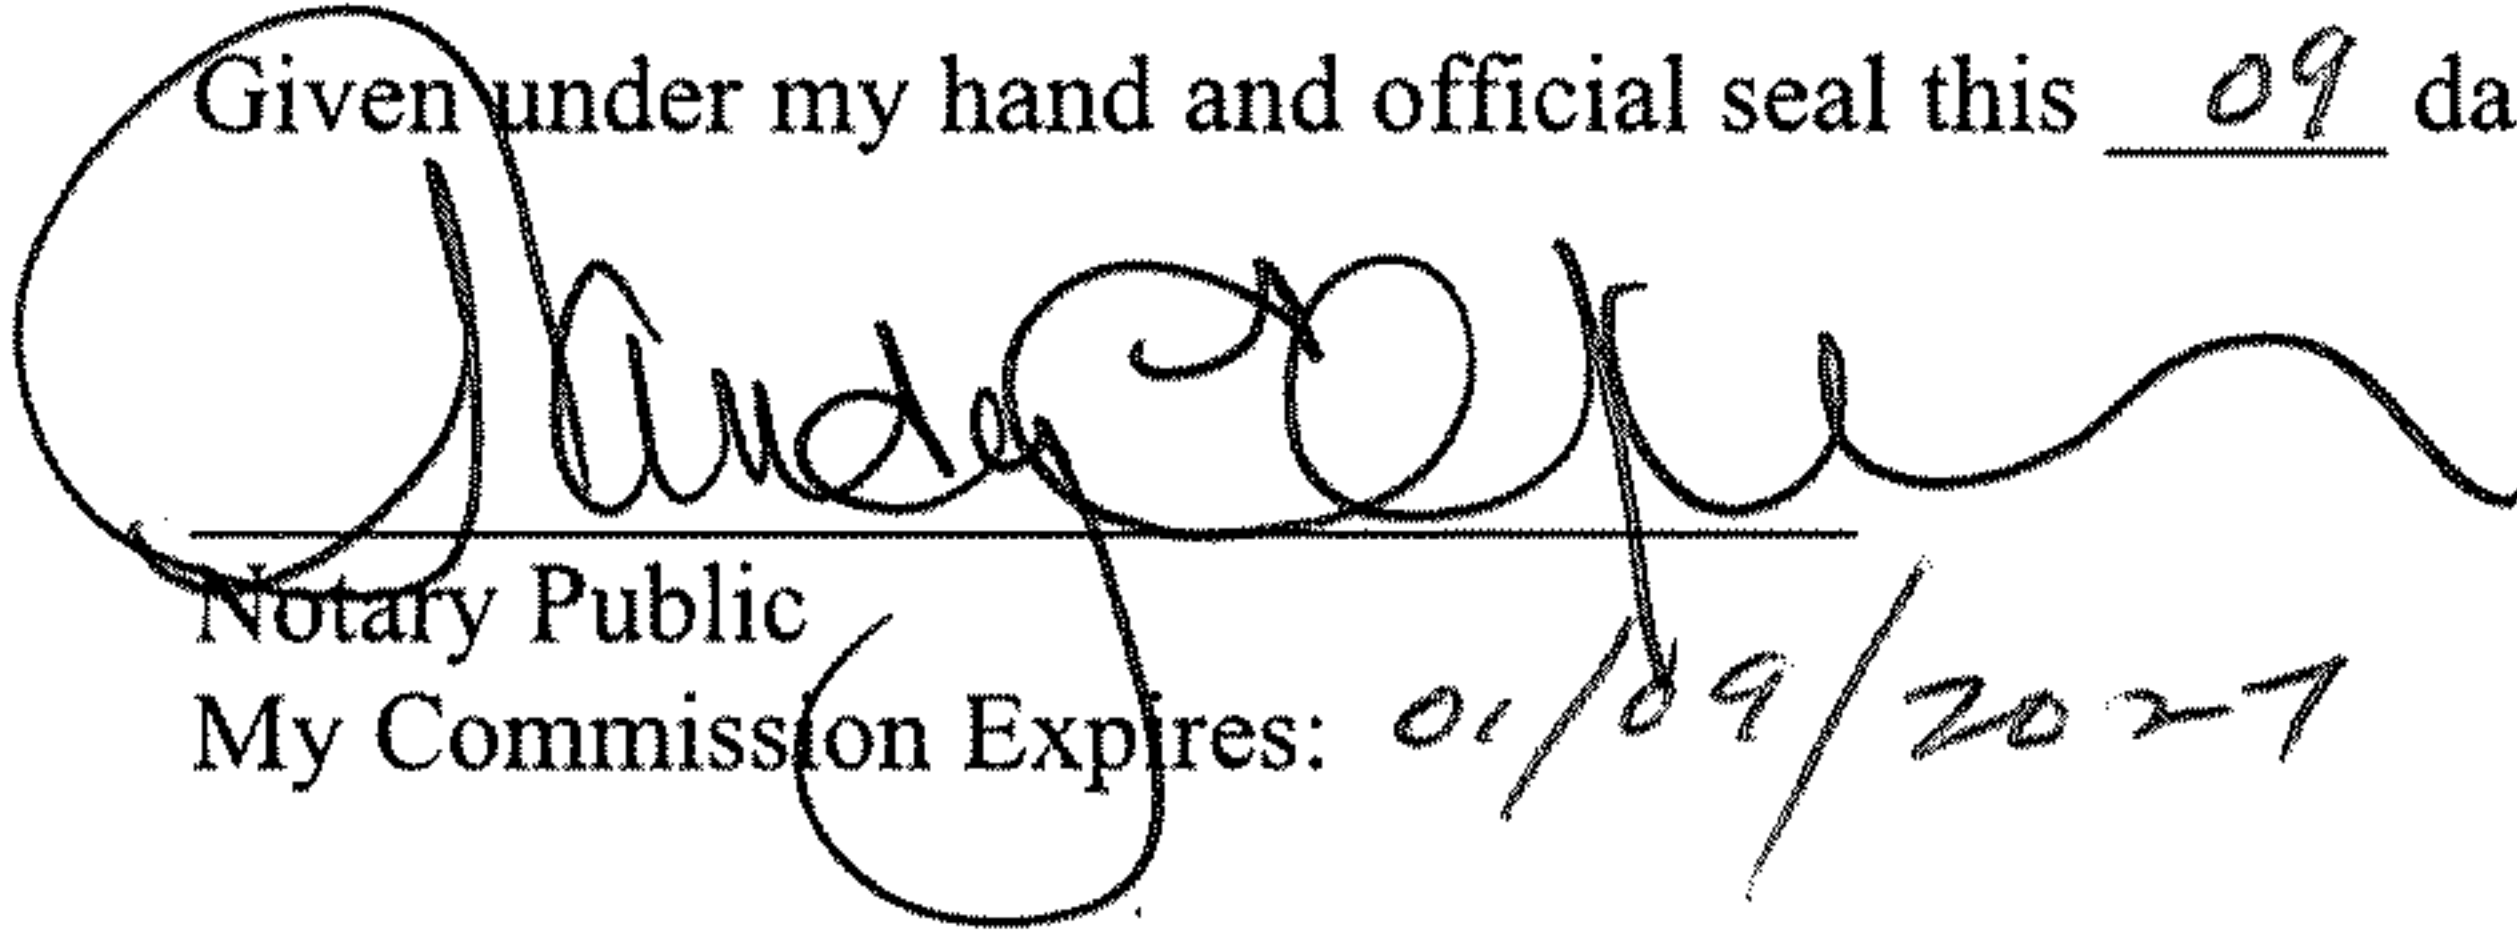 Given under my hand and official seal this 09 da
Notary Public
My Commission Expires: 01/09/2027